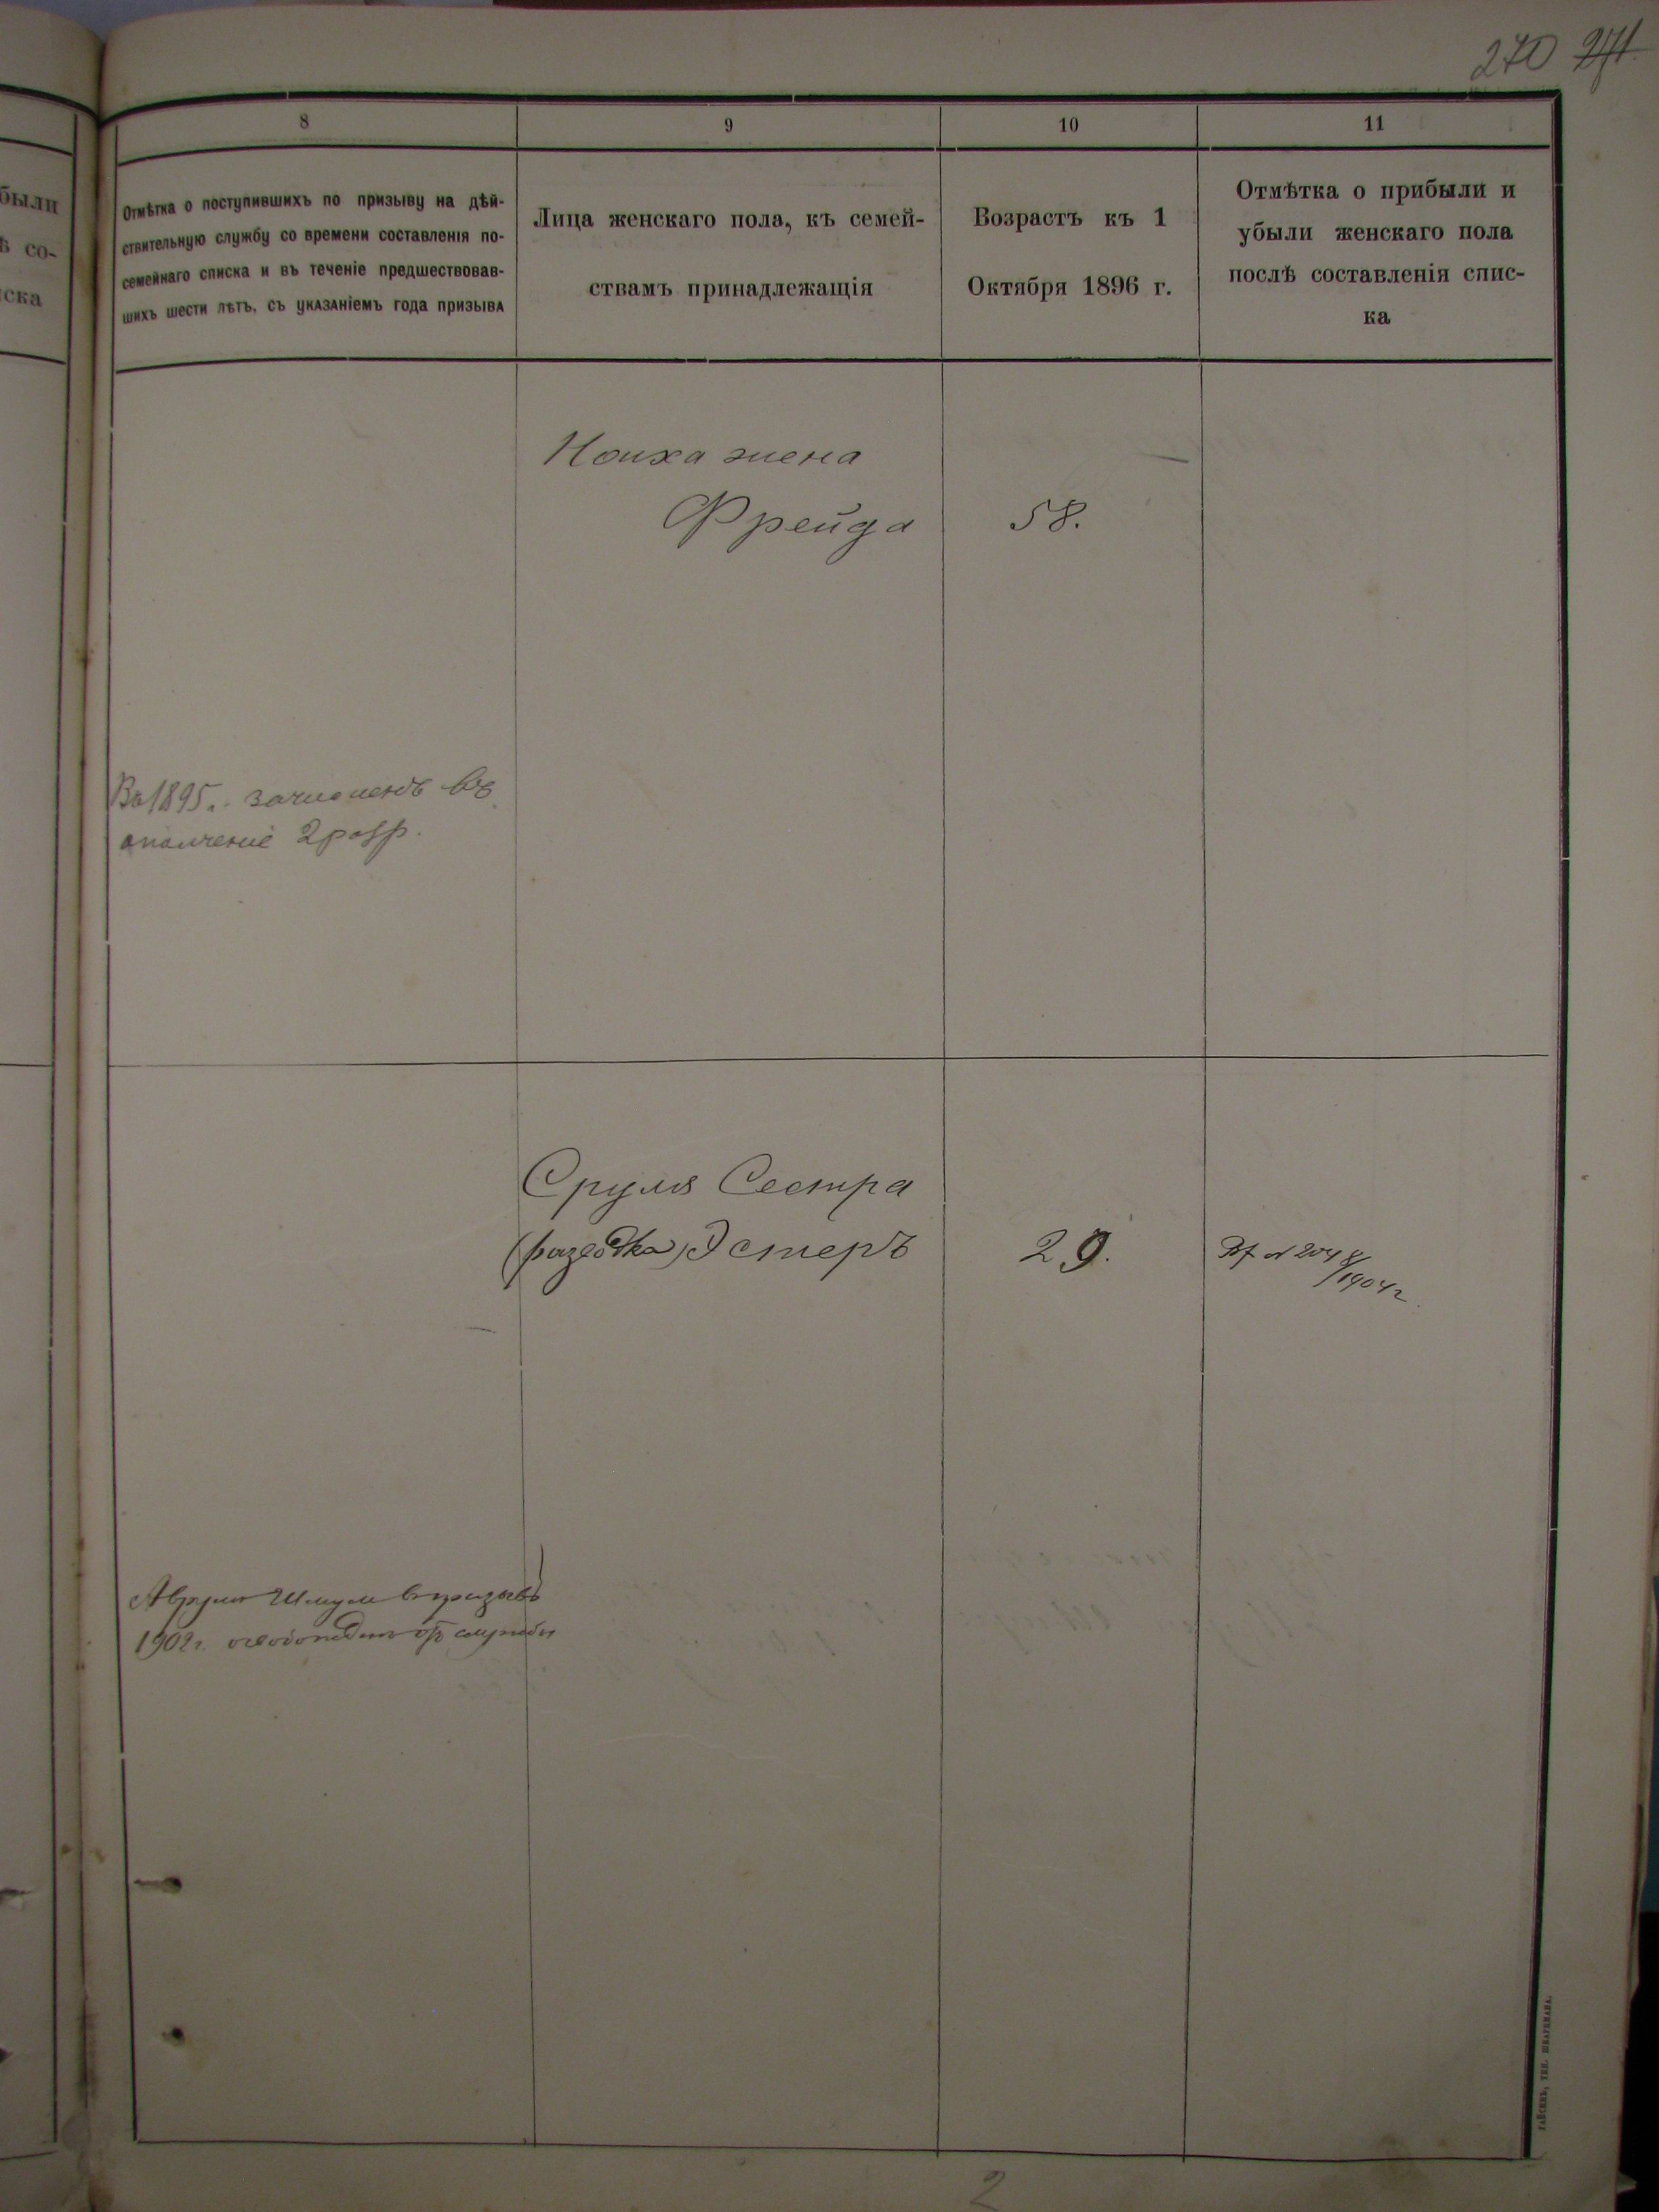 270 271
были
ь со-
иска
8
9
10
11
Отмѣтка о поступившихъ по призыву на дѣй-
ствительную службу со времени составленія по-
семейнаго списка и въ теченіе предшествовав-
шихъ шести лѣтъ, съ указаніемъ года призыва
Лица женскаго пола, къ семей-
ствамъ принадлежащія
Возрастъ къ 1
Октября 1896 г.
Отмѣтка о прибыли и
убыли женскаго пола
послѣ составленія спис-
ка
жена
Фрейда
58.
Въ 1895 г. зачисленъ въ
ополченіе 2 разр.
Сруля Сестра
(разводка) Эстеръ
29.
204 8/1904 г.
Шмуль в призывъ
1902 г. освобожденъ отъ службы
2
ГАЙСИНЪ, ТИП. ШКАРБМАНА.